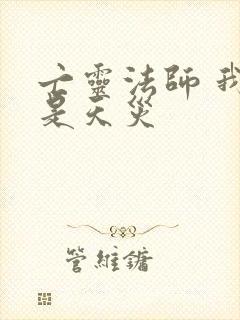 亡靈法師 我
是天災
管維鏞